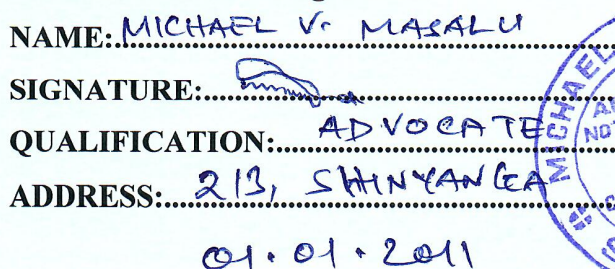 NAME: MICHAEL V. MASALU
SIGNATURE:
QUALIFICATION: ADVOCATE
ADDRESS: 213, SHINYANGA
01.01.2011
MICHAEL